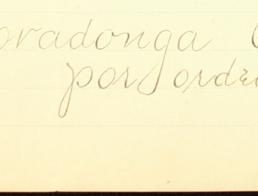 ovadonga
por orde